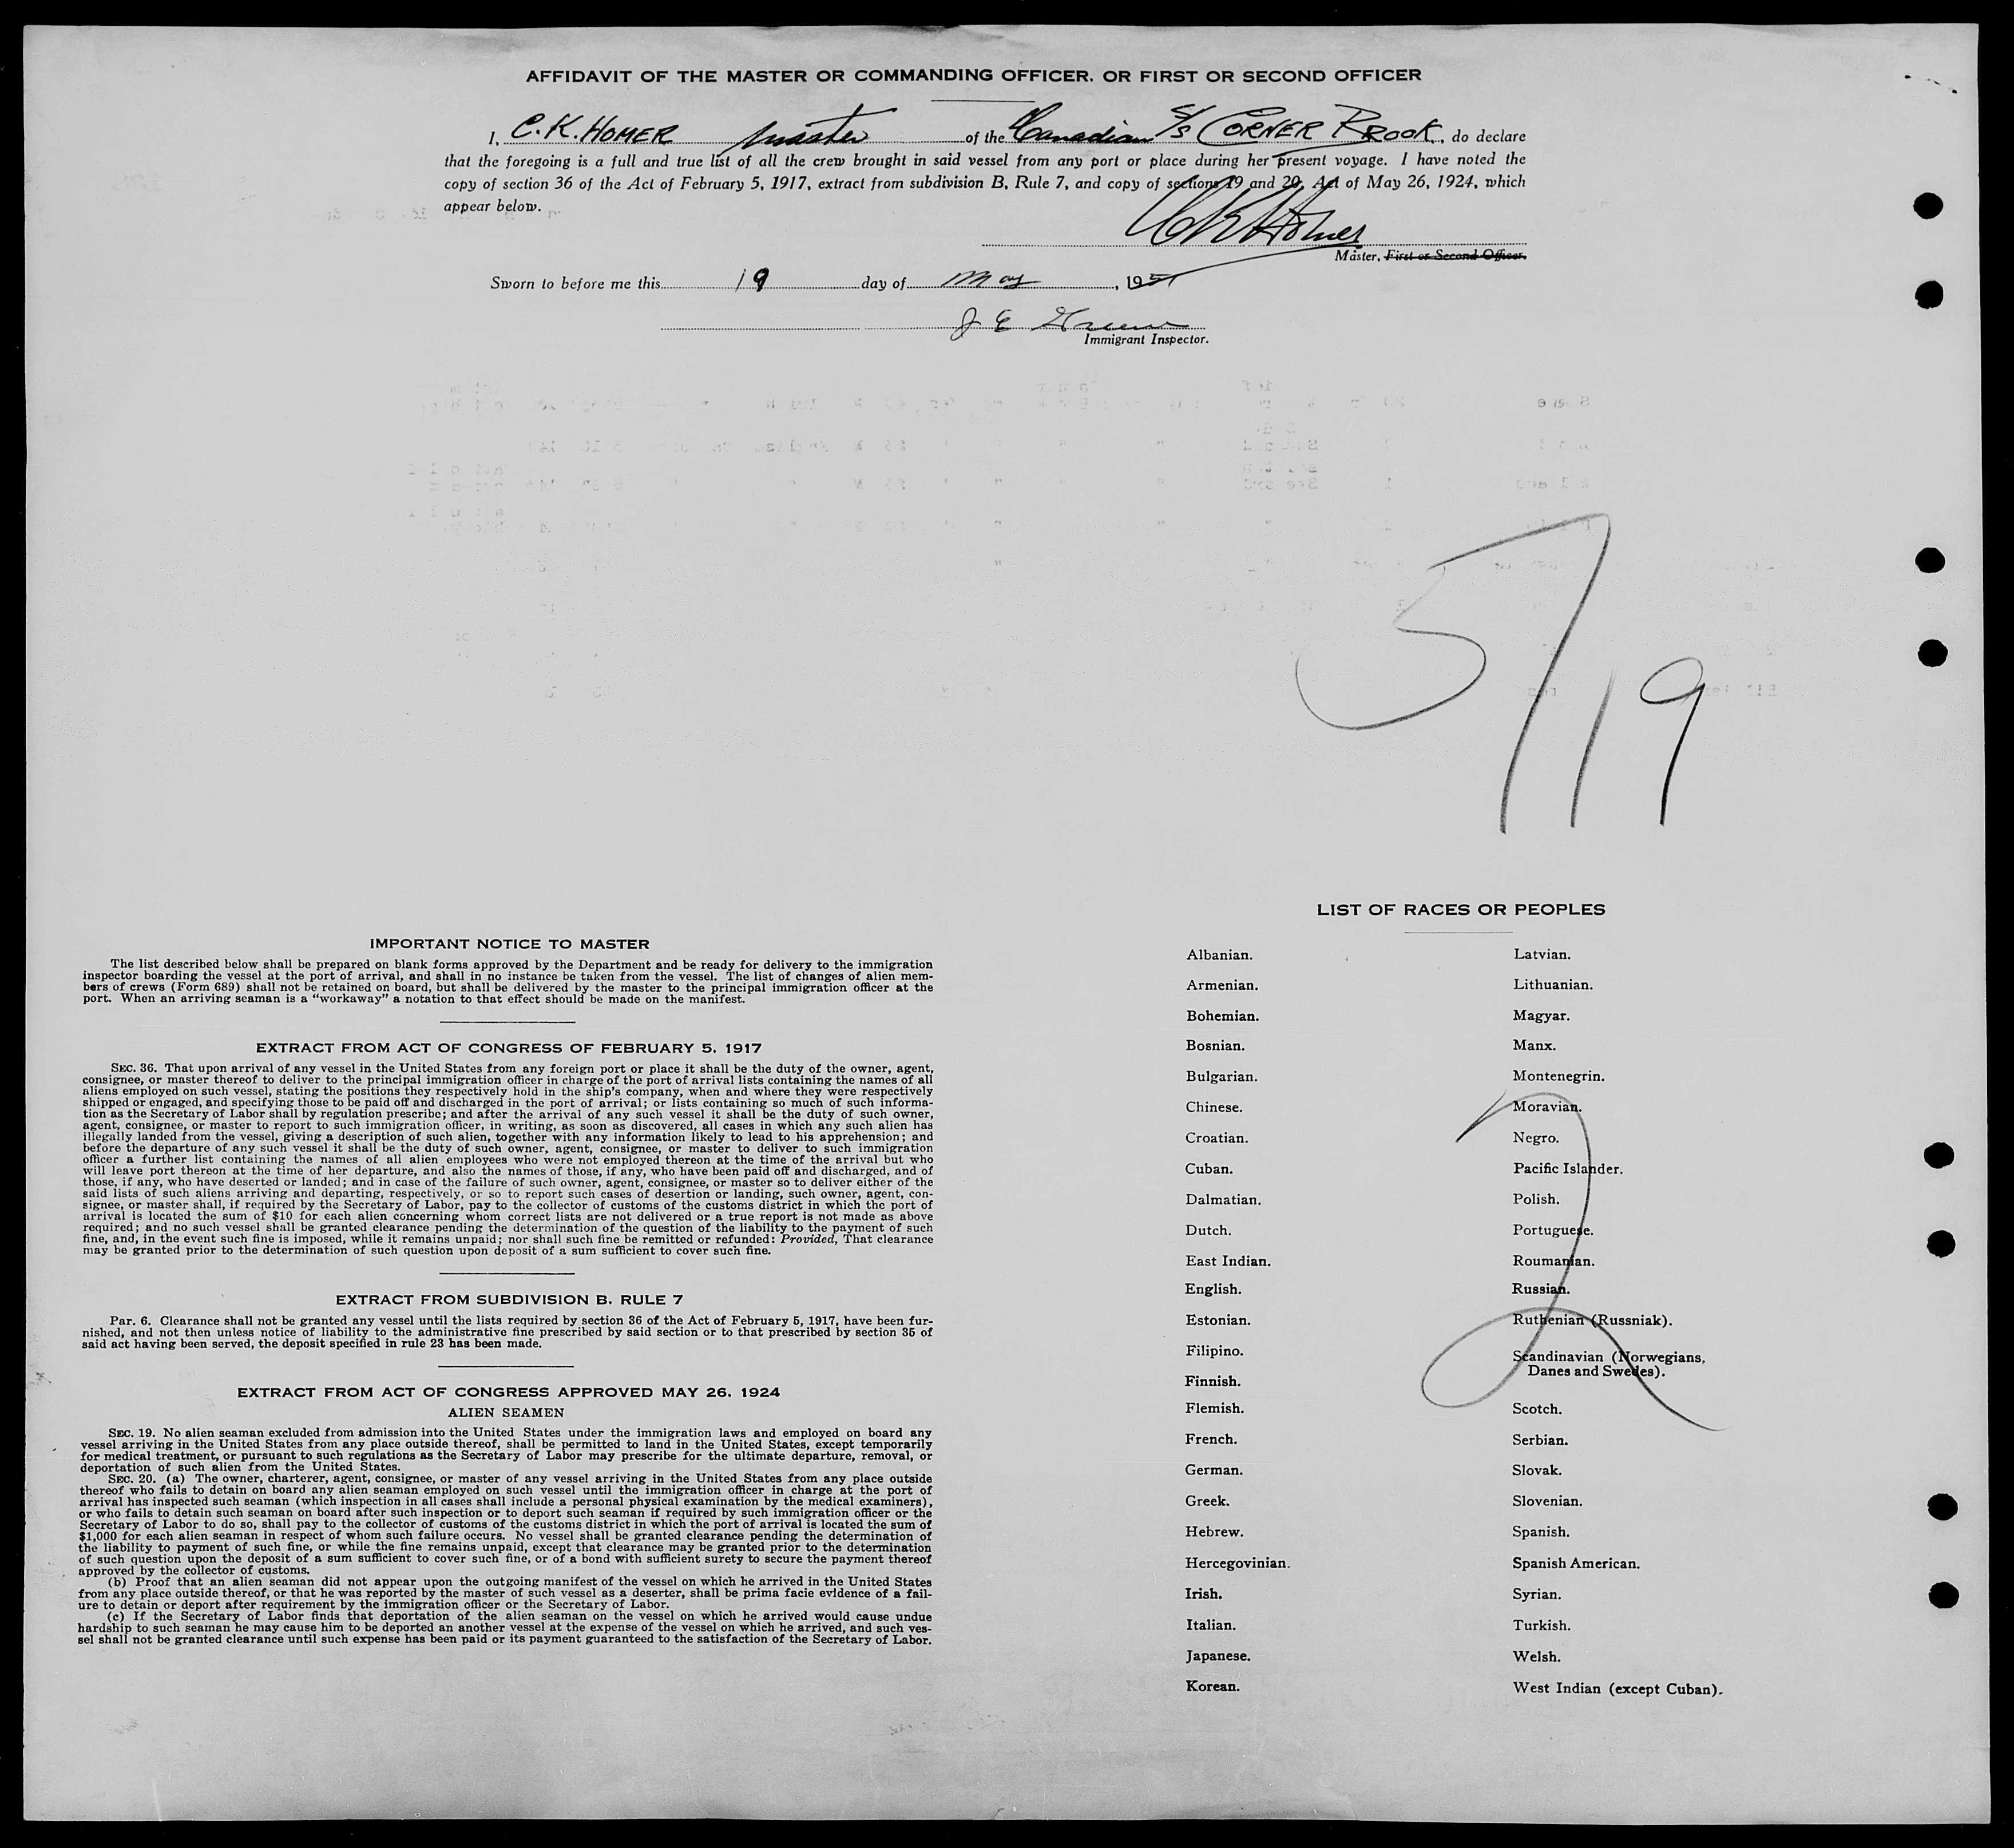 AFFIDAVIT OF THE MASTER OR COMMANDING OFFICER. OR FIRST OR SECOND OFFICER
I, C.K. HOMER master of the Canadian S/S CORNER BROOK, do declare
that the foregoing is a full and true list of all the crew brought in said vessel from any port or place during her present voyage. I have noted the
copy of section 36 of the Act of February 5, 1917, extract from subdivision B, Rule 7, and copy of sections 19 and 20, Act of May 26, 1924, which
appear below.
CKHomer
Master, First or Second Officer.
Sworn to before me this 19 day of May, 1951
J E
Immigrant Inspector.
5/19
IMPORTANT NOTICE TO MASTER
The list described below shall be prepared on blank forms approved by the Department and be ready for delivery to the immigration
inspector boarding the vessel at the port of arrival, and shall in no instance be taken from the vessel. The list of changes of alien mem-
bers of crews (Form 689) shall not be retained on board, but shall be delivered by the master to the principal immigration officer at the
port. When an arriving seaman is a "workaway" a notation to that effect should be made on the manifest.
EXTRACT FROM ACT OF CONGRESS OF FEBRUARY 5, 1917
SEC. 36. That upon arrival of any vessel in the United States from any foreign port or place it shall be the duty of the owner, agent,
consignee, or master thereof to deliver to the principal immigration officer in charge of the port of arrival lists containing the names of all
aliens employed on such vessel, stating the positions they respectively hold in the ship's company, when and where they were respectively
shipped or engaged, and specifying those to be paid off and discharged in the port of arrival; or lists containing so much of such informa-
tion as the Secretary of Labor shall by regulation prescribe; and after the arrival of any such vessel it shall be the duty of such owner,
agent, consignee, or master to report to such immigration officer, in writing, as soon as discovered, all cases in which any such alien has
illegally landed from the vessel, giving a description of such alien, together with any information likely to lead to his apprehension; and
before the departure of any such vessel it shall be the duty of such owner, agent, consignee, or master to deliver to such immigration
officer a further list containing the names of all alien employees who were not employed thereon at the time of the arrival but who
will leave port thereon at the time of her departure, and also the names of those, if any, who have been paid off and discharged, and of
those, if any, who have deserted or landed; and in case of the failure of such owner, agent, consignee, or master so to deliver either of the
said lists of such aliens arriving and departing, respectively, or so to report such cases of desertion or landing, such owner, agent, con-
signee, or master shall, if required by the Secretary of Labor, pay to the collector of customs of the customs district in which the port of
arrival is located the sum of $10 for each alien concerning whom correct lists are not delivered or a true report is not made as above
required; and no such vessel shall be granted clearance pending the determination of the question of the liability to the payment of such
fine, and, in the event such fine is imposed, while it remains unpaid; nor shall such fine be remitted or refunded: Provided, That clearance
may be granted prior to the determination of such question upon deposit of a sum sufficient to cover such fine.
EXTRACT FROM SUBDIVISION B. RULE 7
Par. 6. Clearance shall not be granted any vessel until the lists required by section 36 of the Act of February 5, 1917, have been fur-
nished, and not then unless notice of liability to the administrative fine prescribed by said section or to that prescribed by section 35 of
said act having been served, the deposit specified in rule 23 has been made.
EXTRACT FROM ACT OF CONGRESS APPROVED MAY 26, 1924
ALIEN SEAMEN
SEC. 19. No alien seaman excluded from admission into the United States under the immigration laws and employed on board any
vessel arriving in the United States from any place outside thereof, shall be permitted to land in the United States, except temporarily
for medical treatment, or pursuant to such regulations as the Secretary of Labor may prescribe for the ultimate departure, removal, or
deportation of such alien from the United States.
SEC. 20. (a) The owner, charterer, agent, consignee, or master of any vessel arriving in the United States from any place outside
thereof who fails to detain on board any alien seaman employed on such vessel until the immigration officer in charge at the port of
arrival has inspected such seaman (which inspection in all cases shall include a personal physical examination by the medical examiners),
or who fails to detain such seaman on board after such inspection or to deport such seaman if required by such immigration officer or the
Secretary of Labor to do so, shall pay to the collector of customs of the customs district in which the port of arrival is located the sum of
$1,000 for each alien seaman in respect of whom such failure occurs. No vessel shall be granted clearance pending the determination of
the liability to payment of such fine, or while the fine remains unpaid, except that clearance may be granted prior to the determination
of such question upon the deposit of a sum sufficient to cover such fine, or of a bond with sufficient surety to secure the payment thereof
approved by the collector of customs.
(b) Proof that an alien seaman did not appear upon the outgoing manifest of the vessel on which he arrived in the United States
from any place outside thereof, or that he was reported by the master of such vessel as a deserter, shall be prima facie evidence of a fail-
ure to detain or deport after requirement by the immigration officer or the Secretary of Labor.
(c) If the Secretary of Labor finds that deportation of the alien seaman on the vessel on which he arrived would cause undue
hardship to such seaman he may cause him to be deported an another vessel at the expense of the vessel on which he arrived, and such ves-
sel shall not be granted clearance until such expense has been paid or its payment guaranteed to the satisfaction of the Secretary of Labor.
LIST OF RACES OR PEOPLES
Albanian.
Armenian.
Bohemian.
Bosnian.
Bulgarian.
Chinese.
Croatian.
Cuban.
Dalmatian.
Dutch.
East Indian.
English.
Estonian.
Filipino.
Finnish.
Flemish.
French.
German.
Greek.
Hebrew.
Hercegovinian.
Irish.
Italian.
Japanese.
Korean.
Latvian.
Lithuanian.
Magyar.
Manx.
Montenegrin.
Moravian.
Negro.
Pacific Islander.
Polish.
Portuguese.
Roumanian.
Russian.
Ruthenian (Russniak).
Scandinavian (Norwegians,
Danes and Swedes).
Scotch.
Serbian.
Slovak.
Slovenian.
Spanish.
Spanish American.
Syrian.
Turkish.
Welsh.
West Indian (except Cuban).
2